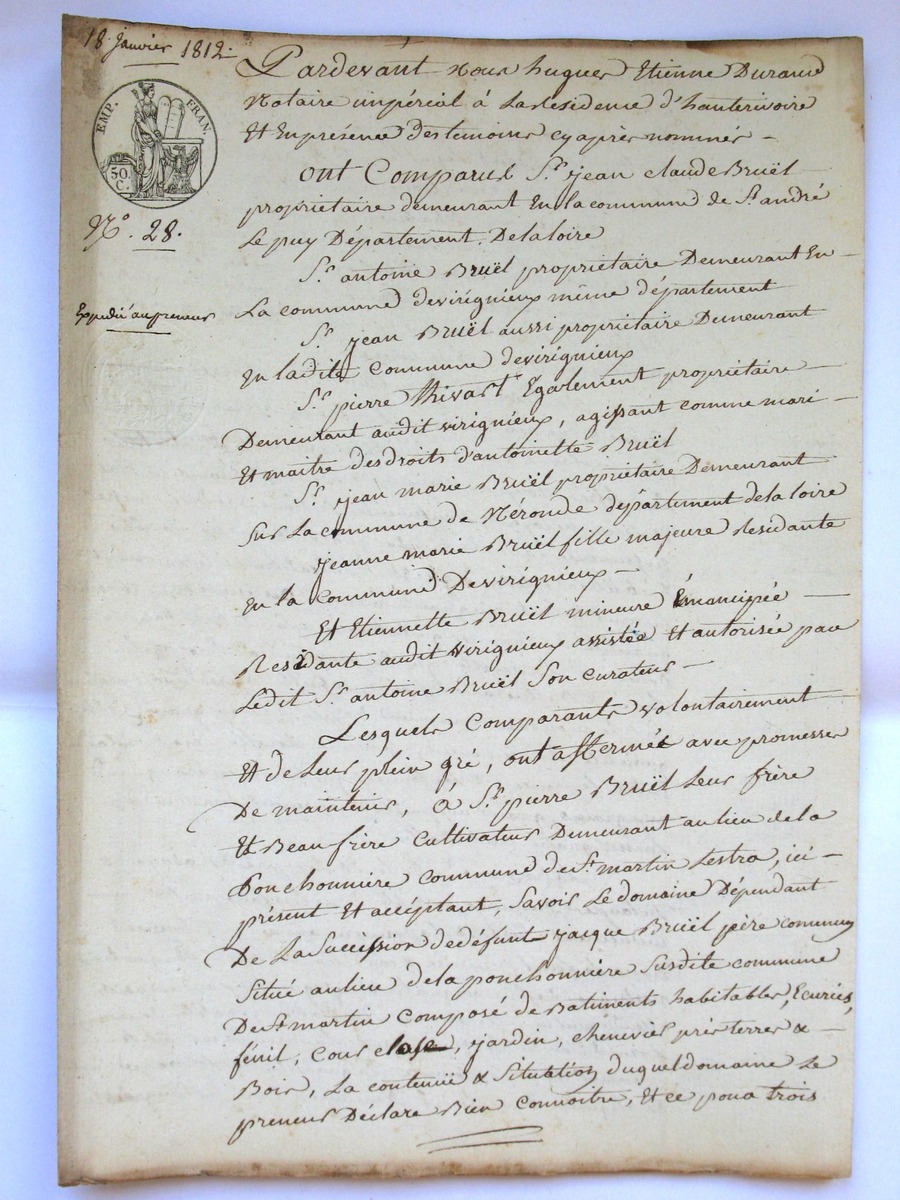 18 Janvier 1812.
EMP. FRAN.
50. C.
N.o 28.
Expedié au preneur
Pardevant Nous hugues Etienne Durand
Notaire impérial á La Residence d'hauterivoire
Et En présence Des temoins cy après nommés —
ont Comparus S.r jean claude Bruël
propriétaire demeurant En la commune de S.t andré
Le puy Département De la loire
S.r antoine Bruël propriétaire Demeurant En —
La commune de virignieux même département
S.r jean Bruël aussi propriétaire Demeurant
En ladite commune de virignieux
S.r pierre Thivart Egalement propriétaire —
Demeurant audit virignieux, agissant comme mari —
Et maitre des droits d'antoinette Bruël
S.r jean marie Bruël propriétaire Demeurant
Sur La commune de Néronde département de la loire
jeanne marie Bruël fille majeure Residante
En la commune De virignieux —
Et Etiennette Bruël mineure Émancipée —
Residante audit virignieux assistée Et autorisée par
Ledit S.r antoine Bruël Son curateur —
Lesquels Comparants volontairement
Et de Leur plein gré, ont affermé avec promesse
De maintenir, á S.r pierre Bruël Leur frère
Et Beau frère Cultivateur Demeurant au lieu de la
Ponchonnière commune de S.t martin Lestra, ici —
présent Et accéptant, Savoir Le domaine Dépendant
De La Succession de défunt jacque Bruël père commun
Situé au lieu de la ponchonnière Susdite commune
De S.t martin Composé de Batiments habitables, Ecuries,
fénil, Cour, jardin, chenevier près terres &
Bois, La contenüe & Situation duquel domaine Le
preneur Déclare Bien Connoitre, Et ce pour trois